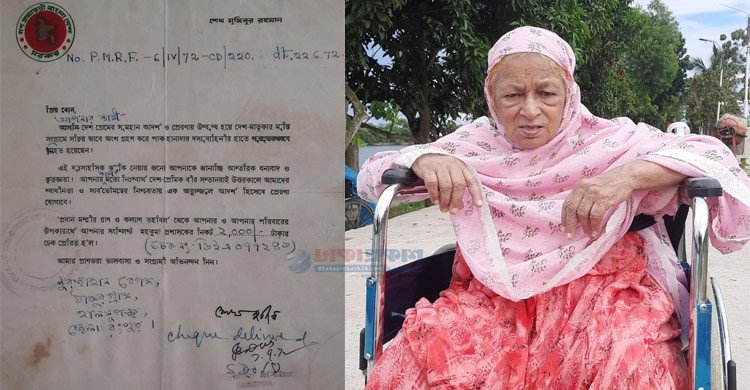 গণপ্রজাতন্ত্রী বাংলাদেশ সরকার
শেখ মুজিবুর রহমান
No. P.M.R.F. -6/IV/72 -CD/220. dt. 22.6.72
প্রিয় বোন,
আপনার স্বামী
আপনি দেশ প্রেমের সুমহান আদর্শ ও প্রেরণায় উদ্বুদ্ধ হয়ে দেশ-মাতৃকার মুক্তি
সংগ্রামে সক্রিয় ভাবে অংশ গ্রহণ করে পাক হানাদার দস্যুবাহিনীর হাতে
হয়েছেন।
এই দুঃসাহসিক ঝুঁকি নেয়ার জন্যে আপনাকে জানাচ্ছি আন্তরিক ধন্যবাদ ও
কৃতজ্ঞতা। মতো নিঃস্বার্থ দেশ-প্রেমিক বীর সন্তানরাই উত্তরকালে আমাদের
স্বাধীনতা ও সার্বভৌমত্বের নিশ্চয়তায় এক অত্যুজ্জ্বল আদর্শ হিসেবে প্রেরণা
যোগাবে।
'প্রধান মন্ত্রীর ত্রাণ ও কল্যাণ তহবিল' থেকে আপনার ও আপনার পরিবারের
উপকারার্থে আপনার সংশ্লিষ্ট মহকুমা প্রশাসকের নিকট 2,000/- টাকার
চেক প্রেরিত হ'ল।
আমার প্রাণভরা ভালবাসা ও সংগ্রামী অভিনন্দন নিন।
নুরজাহান বেগম,
জেলা রংপুর।
cheque delivered
ঢাকাপ্রকাশ
dhakaprokash24.com